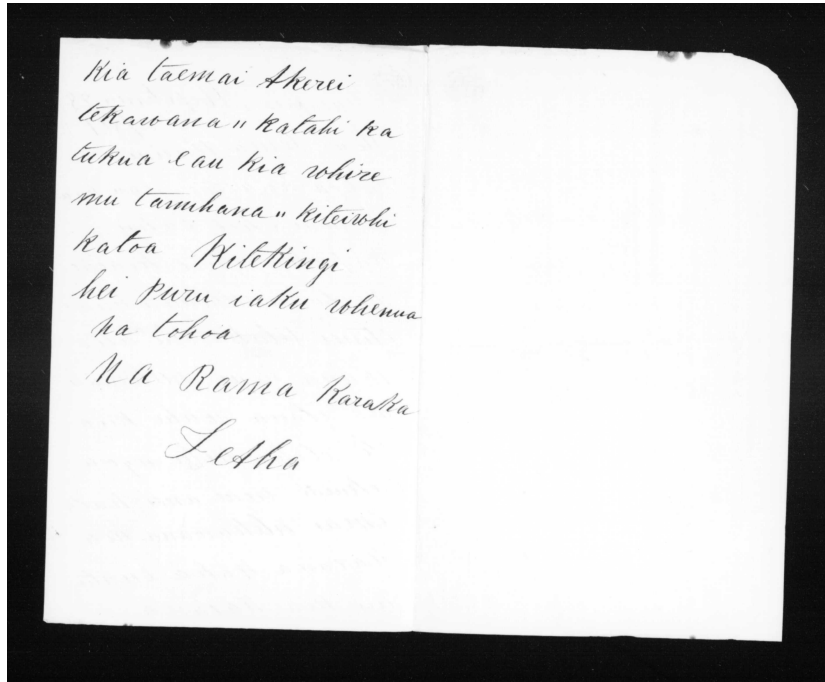 Kia taemai Akerei
tekawana " Katahi ka
tukua eau Kia whire
mu tamihana " Kiteiwhi
Katoa KiteKingi
hei puru iaku whenua
na tohoa
NA Rama Karaka